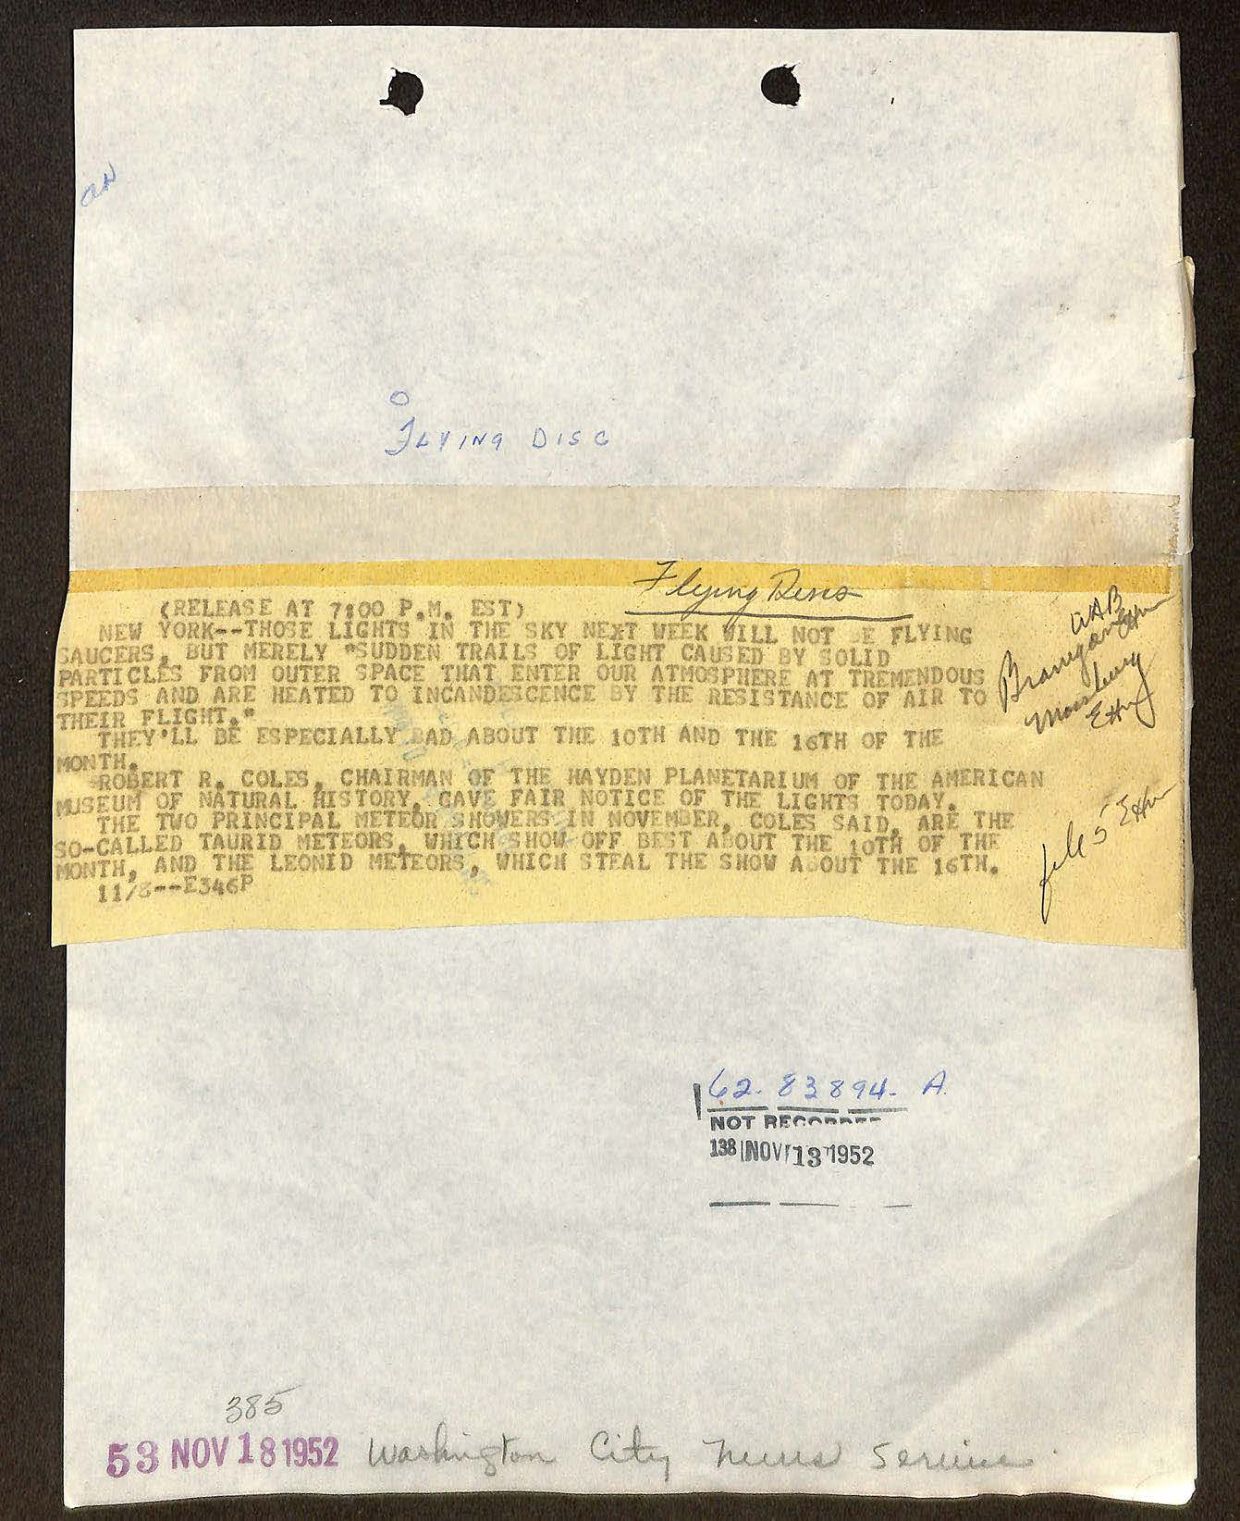 Flying Disc
Flying Discs
(RELEASE AT 7:00 P.M. EST)
NEW YORK--THOSE LIGHTS IN THE SKY NEXT WEEK WILL NOT BE FLYING
SAUCERS, BUT MERELY "SUDDEN TRAILS OF LIGHT CAUSED BY SOLID
PARTICLES FROM OUTER SPACE THAT ENTER OUR ATMOSPHERE AT TREMENDOUS
SPEEDS AND ARE HEATED TO INCANDESCENCE BY THE RESISTANCE OF AIR TO
THEIR FLIGHT."
THEY'LL BE ESPECIALLY BAD ABOUT THE 10TH AND THE 16TH OF THE
MONTH.
ROBERT R. COLES, CHAIRMAN OF THE HAYDEN PLANETARIUM OF THE AMERICAN
MUSEUM OF NATURAL HISTORY, GAVE FAIR NOTICE OF THE LIGHTS TODAY.
THE TWO PRINCIPAL METEOR SHOWERS IN NOVEMBER, COLES SAID, ARE THE
SO-CALLED TAURID METEORS, WHICH SHOW OFF BEST ABOUT THE 10TH OF THE
MONTH, AND THE LEONID METEORS, WHICH STEAL THE SHOW ABOUT THE 16TH.
E346P
WAB
Branigan
file 5
62-83894-A
NOT RECORDED
138 NOV 13 1952
385
53 NOV 18 1952 Washington City News Service